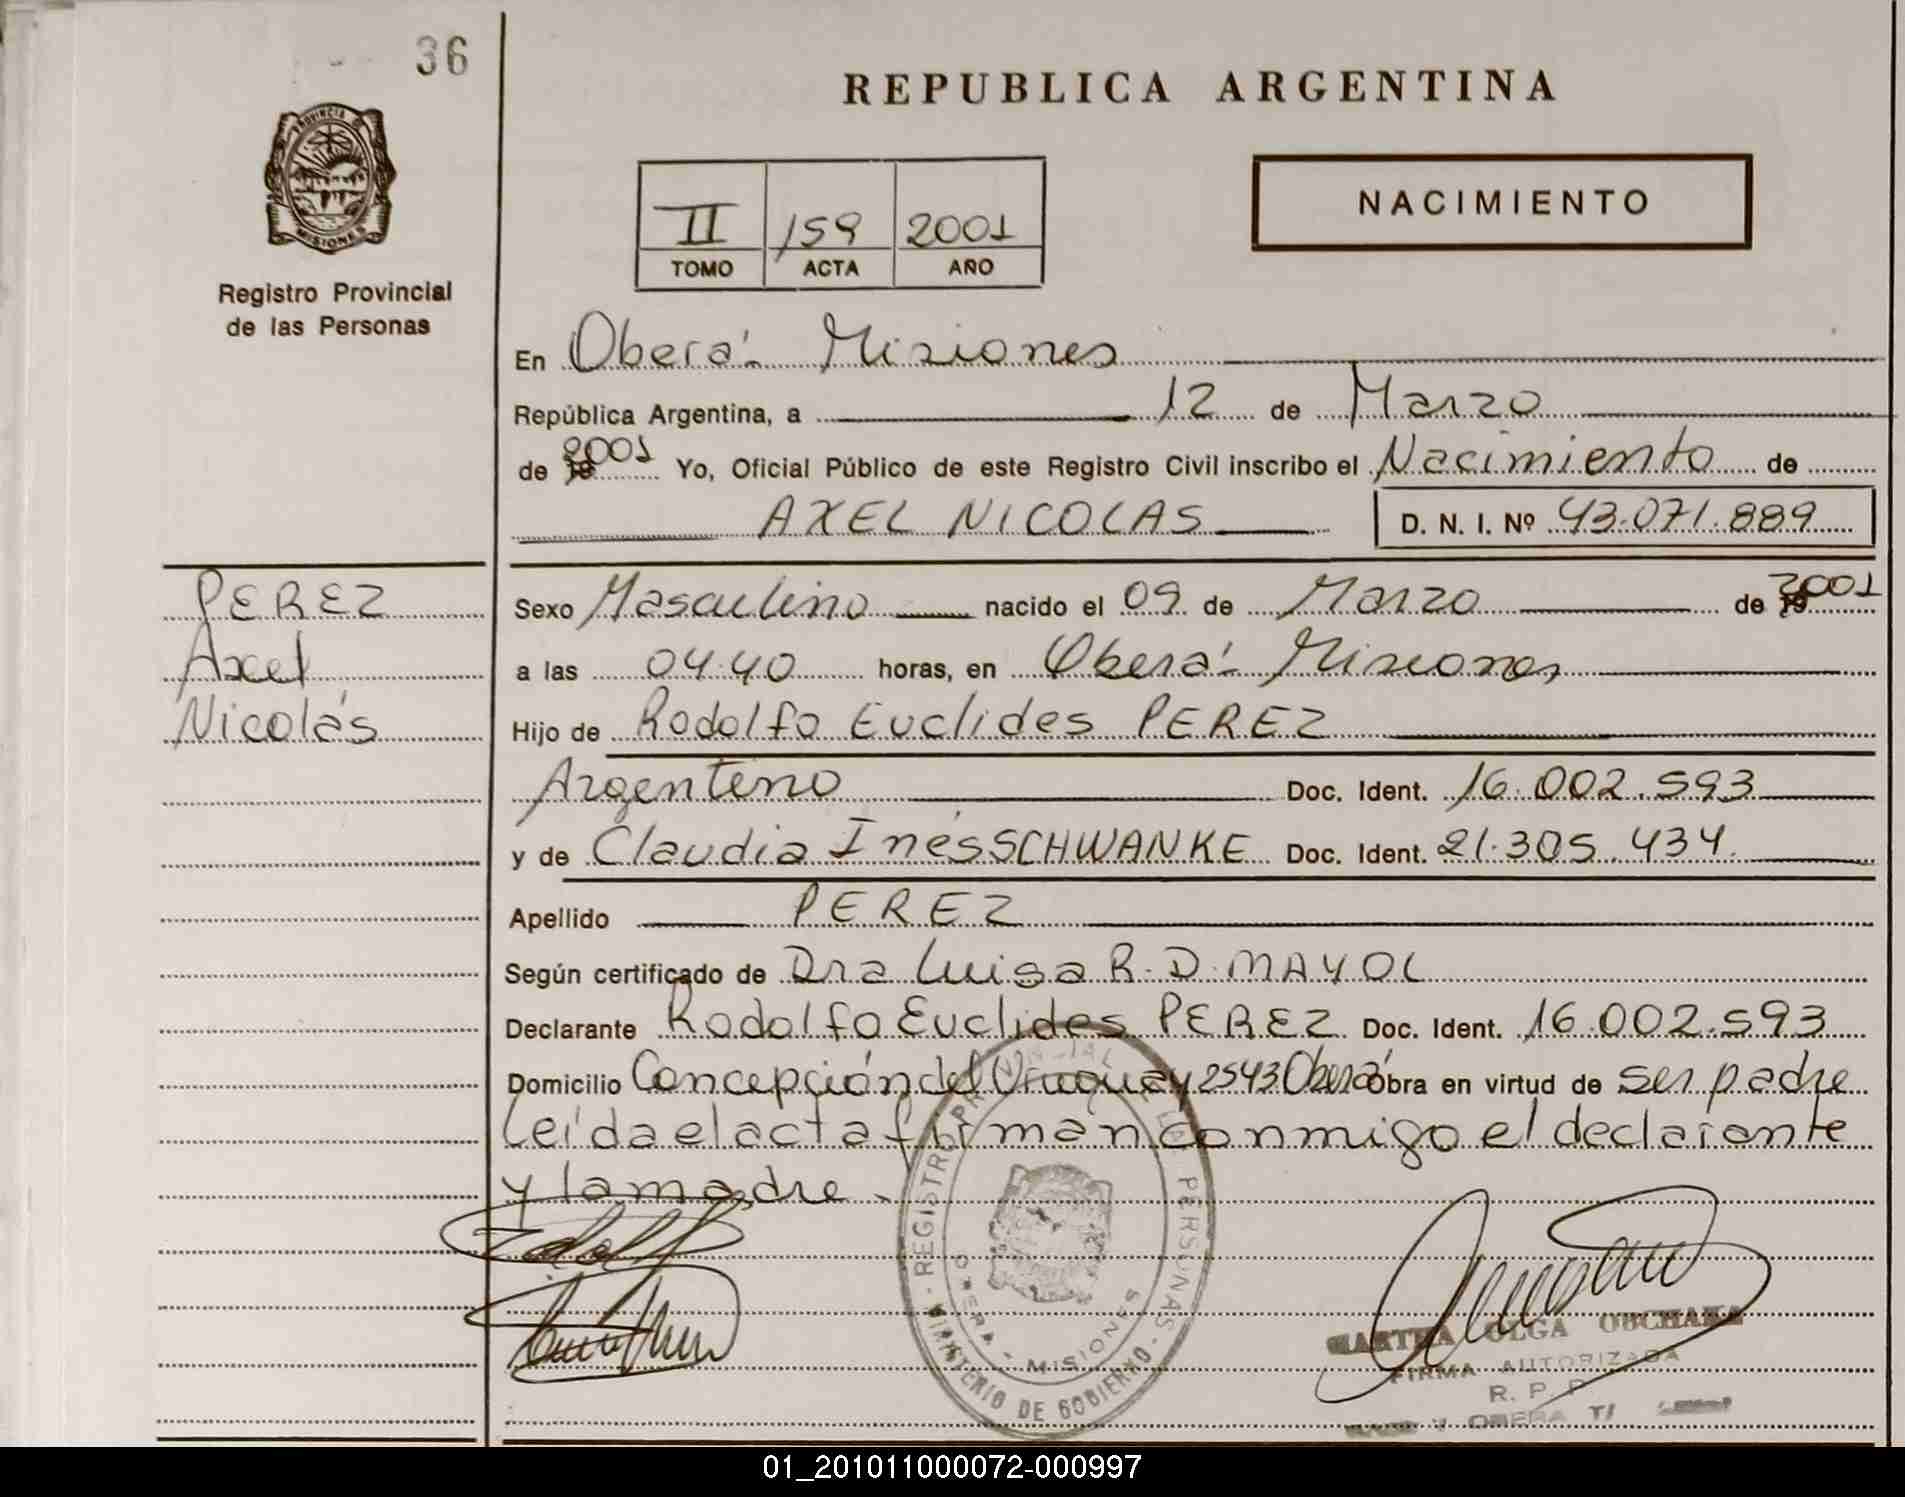 36
REPUBLICA ARGENTINA
PROVINCIA DE
MISIONES
Registro Provincial
de las Personas
NACIMIENTO
II 159 2001
TOMO ACTA AÑO
En Oberá - Misiones
República Argentina, a 12 de Marzo
de 19 2001 Yo, Oficial Público de este Registro Civil inscribo el Nacimiento de
AXEL NICOLAS D. N. I. Nº 43.071.889
PEREZ
Axel
Nicolás
Sexo Masculino nacido el 09 de Marzo de 19 2001
a las 04.40 horas, en Oberá - Misiones
Hijo de Rodolfo Euclides PEREZ
Argentino Doc. Ident. 16.002.593
y de Claudia Inés SCHWANKE Doc. Ident. 21.305.434.
Apellido PEREZ
Según certificado de Dra Luisa R. D. MAYOL
Declarante Rodolfo Euclides PEREZ Doc. Ident. 16.002.593
Domicilio Concepción del Uruguay 2543 Oberá Obra en virtud de ser padre
Leída el acta firman conmigo el declarante
y la madre.
REGISTRO PROVINCIAL DE LAS PERSONAS
OBERA - MISIONES
MINISTERIO DE GOBIERNO
MARTHA OLGA OBCHAKA
FIRMA AUTORIZADA
R. P. P.
OBERA
01_201011000072-000997